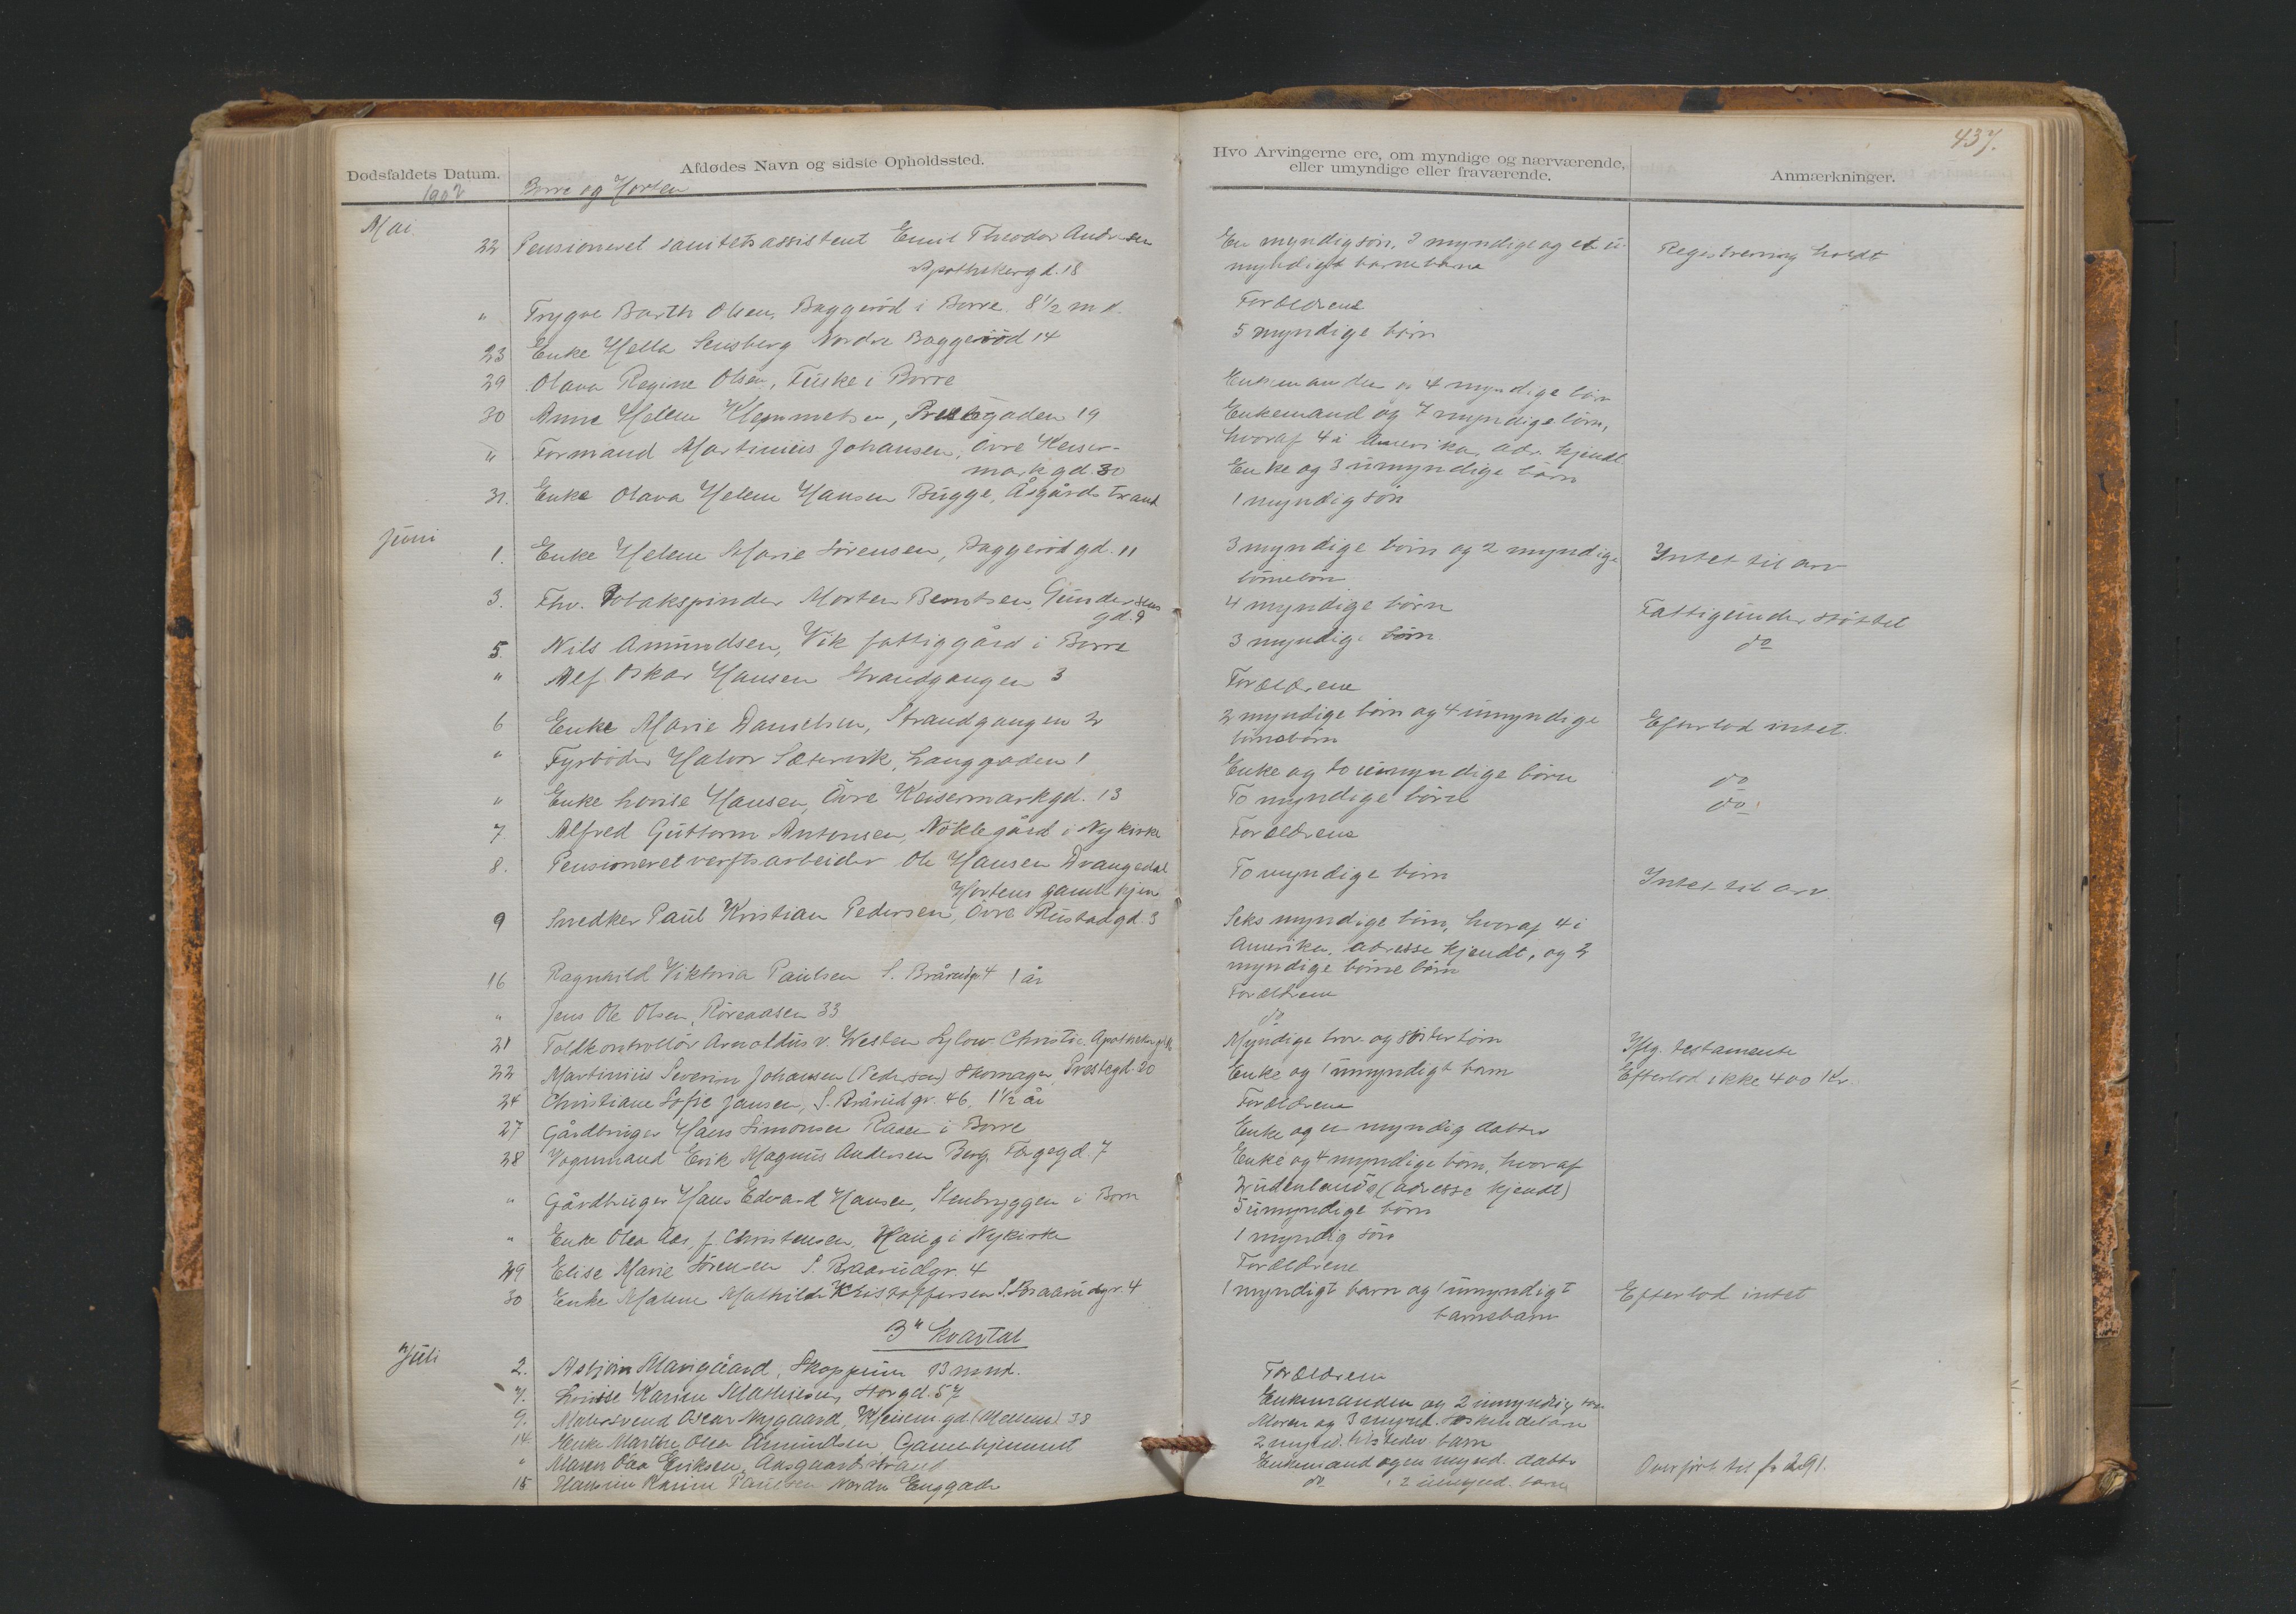 437.
Dødsfaldets Datum.
Afdødes Navn og sidste Opholdssted.
Hvo Arvingerne ere, om myndige og nærværende,
eller umyndige eller fraværende.
Anmærkninger.
1902 Borre og Horten
Mai
22 Pensioneret sanitetsassistent Emil Theodor Andersen
Apothekergd. 18
En myndig søn, 3 myndige og et u-
myndigt barnebarn
Registrering holdt
" Trygve Barth Olsen, Baggerød i Borre 8 1/2 md.
Forældrene
23 Enke Hella Sensberg Nordre Baggerød 14
5 myndige børn
29 Olava Regine Olsen, Fuske i Borre
Enkemanden og 4 myndige børn
30 Anne Helene Klemmetsen, Prestegaden 19
Enkemand og 7 myndige børn,
hvoraf 4 i Amerika, adr. kjendt
" Formand Martinius Johansen, Övre Keiser-
markgd. 30
Enke og 3 umyndige børn
31. Enke Olava Helene Hansen Bugge, Åsgårdstrand
1 myndig søn
Juni
1. Enke Helene Marie Sørensen, Baggerødgd. 11
3 myndige børn og 2 myndige
børnebørn
Intet til arv
3. Fhv. Tobakspinder Morten Berntsen, Gundersens
gd. 9
4 myndige børn
Fattigunderstøttet
5. Nils Amundsen, Vik fattiggård i Borre
3 myndige børn
do
" Alf Oskar Hansen Strandgangen 3
Forældrene
6 Enke Marie Danielsen, Strandgangen 2
2 myndige børn og 4 umyndige
børnebørn
Efterlod intet.
" Fyrbøder Halvor Sætervik, Langgaden 1
Enke og to umyndige børn
do
" Enke Lovise Hansen, Övre Keisermarkgd. 13
To myndige børn
do
7. Alfred Guttorm Antonsen, Nøklegård i Nykirke
Forældrene
8. Pensioneret verftsarbeider Ole Hansen Drangedal
Hortens gamlehjem
To myndige børn
Intet til arv.
9 Snedker Paul Kristian Pedersen, Övre Rustadgd. 3
Seks myndige børn, hvoraf 4 i
Amerika, adresse kjendt, og 2
myndige børnebørn
16 Ragnhild Viktoria Paulsen S. Brårudgr 4 1 år
Forældrene
" Jens Ole Olsen, Røreaasen 33
do
21 Toldkontrollør Arnoldus v. Westen Sylow Christie Apothekergd.
Myndige bror og søsterbørn
Iflg. testamente
22 Martinius Severin Johansen (Pedersen) Skomager, Prestegd. 20
Enke og 1 umyndigt barn
Efterlod ikke 400 Kr.
24 Christiane Sofie Jansen, S. Brårudgr. 46, 1 1/2 år
Forældrene
27 Gårdbruger Hans Simonsen Raaen i Borre
Enke og en myndig datter
28 Vognmand Erik Magnus Andersen Berg, Færgegd. 7
Enke og 4 myndige børn, hvoraf
2 udenlands (adresse kjendt)
" Gårdbruger Hans Edvard Hansen, Stenbryggen i Borre
5 umyndige børn
" Enke Olea Aas, f. Christensen, Haug i Nykirke
1 myndig søn
29 Elise Marie Sørensen S. Braarudgr. 4
Forældrene
30 Enke Malene Mathilde Kristoffersen S. Braarudgr. 4
1 myndigt barn og 1 umyndigt
barnebarn
Efterlod intet
3" Kvartal
Juli
2. Asbjørn Marigaard, Skoppum 13 mnd.
Forældrene
7. Lovise Karine Mathisen, Storgd. 57
Enkemanden og 2 umyndig
9. Malersvend Oscar Nygaard, Keiserm.gd. (Mellem) 38
Moren og 3 mynd. søskendebarn
14. Enke Marthe Olea Amundsen, Gamlehjemmet
2 mynd. barn
" Maren Olea Eriksen, Aasgaardstrand
Enkemand og en mynd. datter
Overført til fo 291.
15 Karine Paulsen Nordre Enggade
do 2 umynd. barn